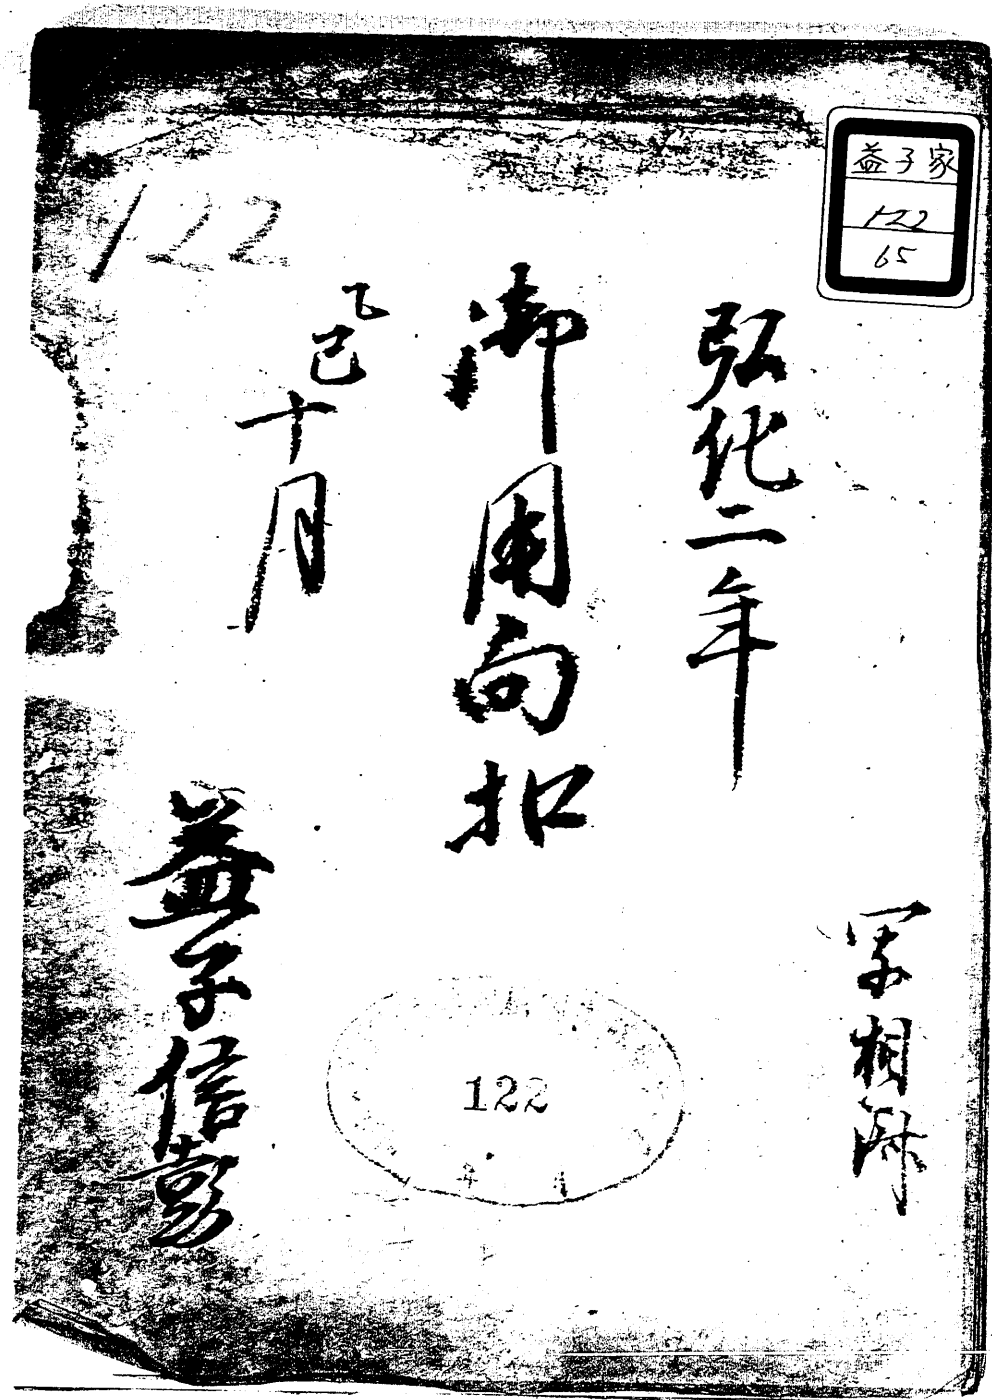 益子家
122
65
122
弘化二年
御用向扣
乙巳十月
益子信
相
122